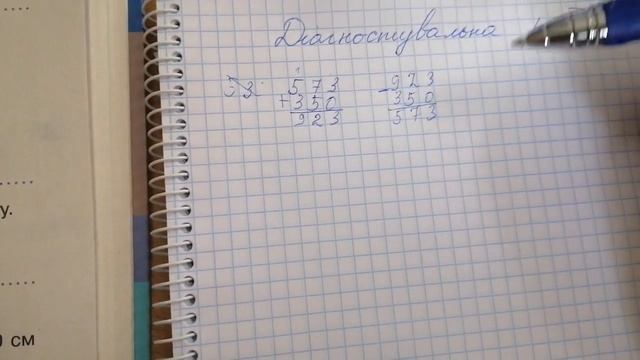 Діагностувальна
573
+350
923
923
-350
573
у.
см